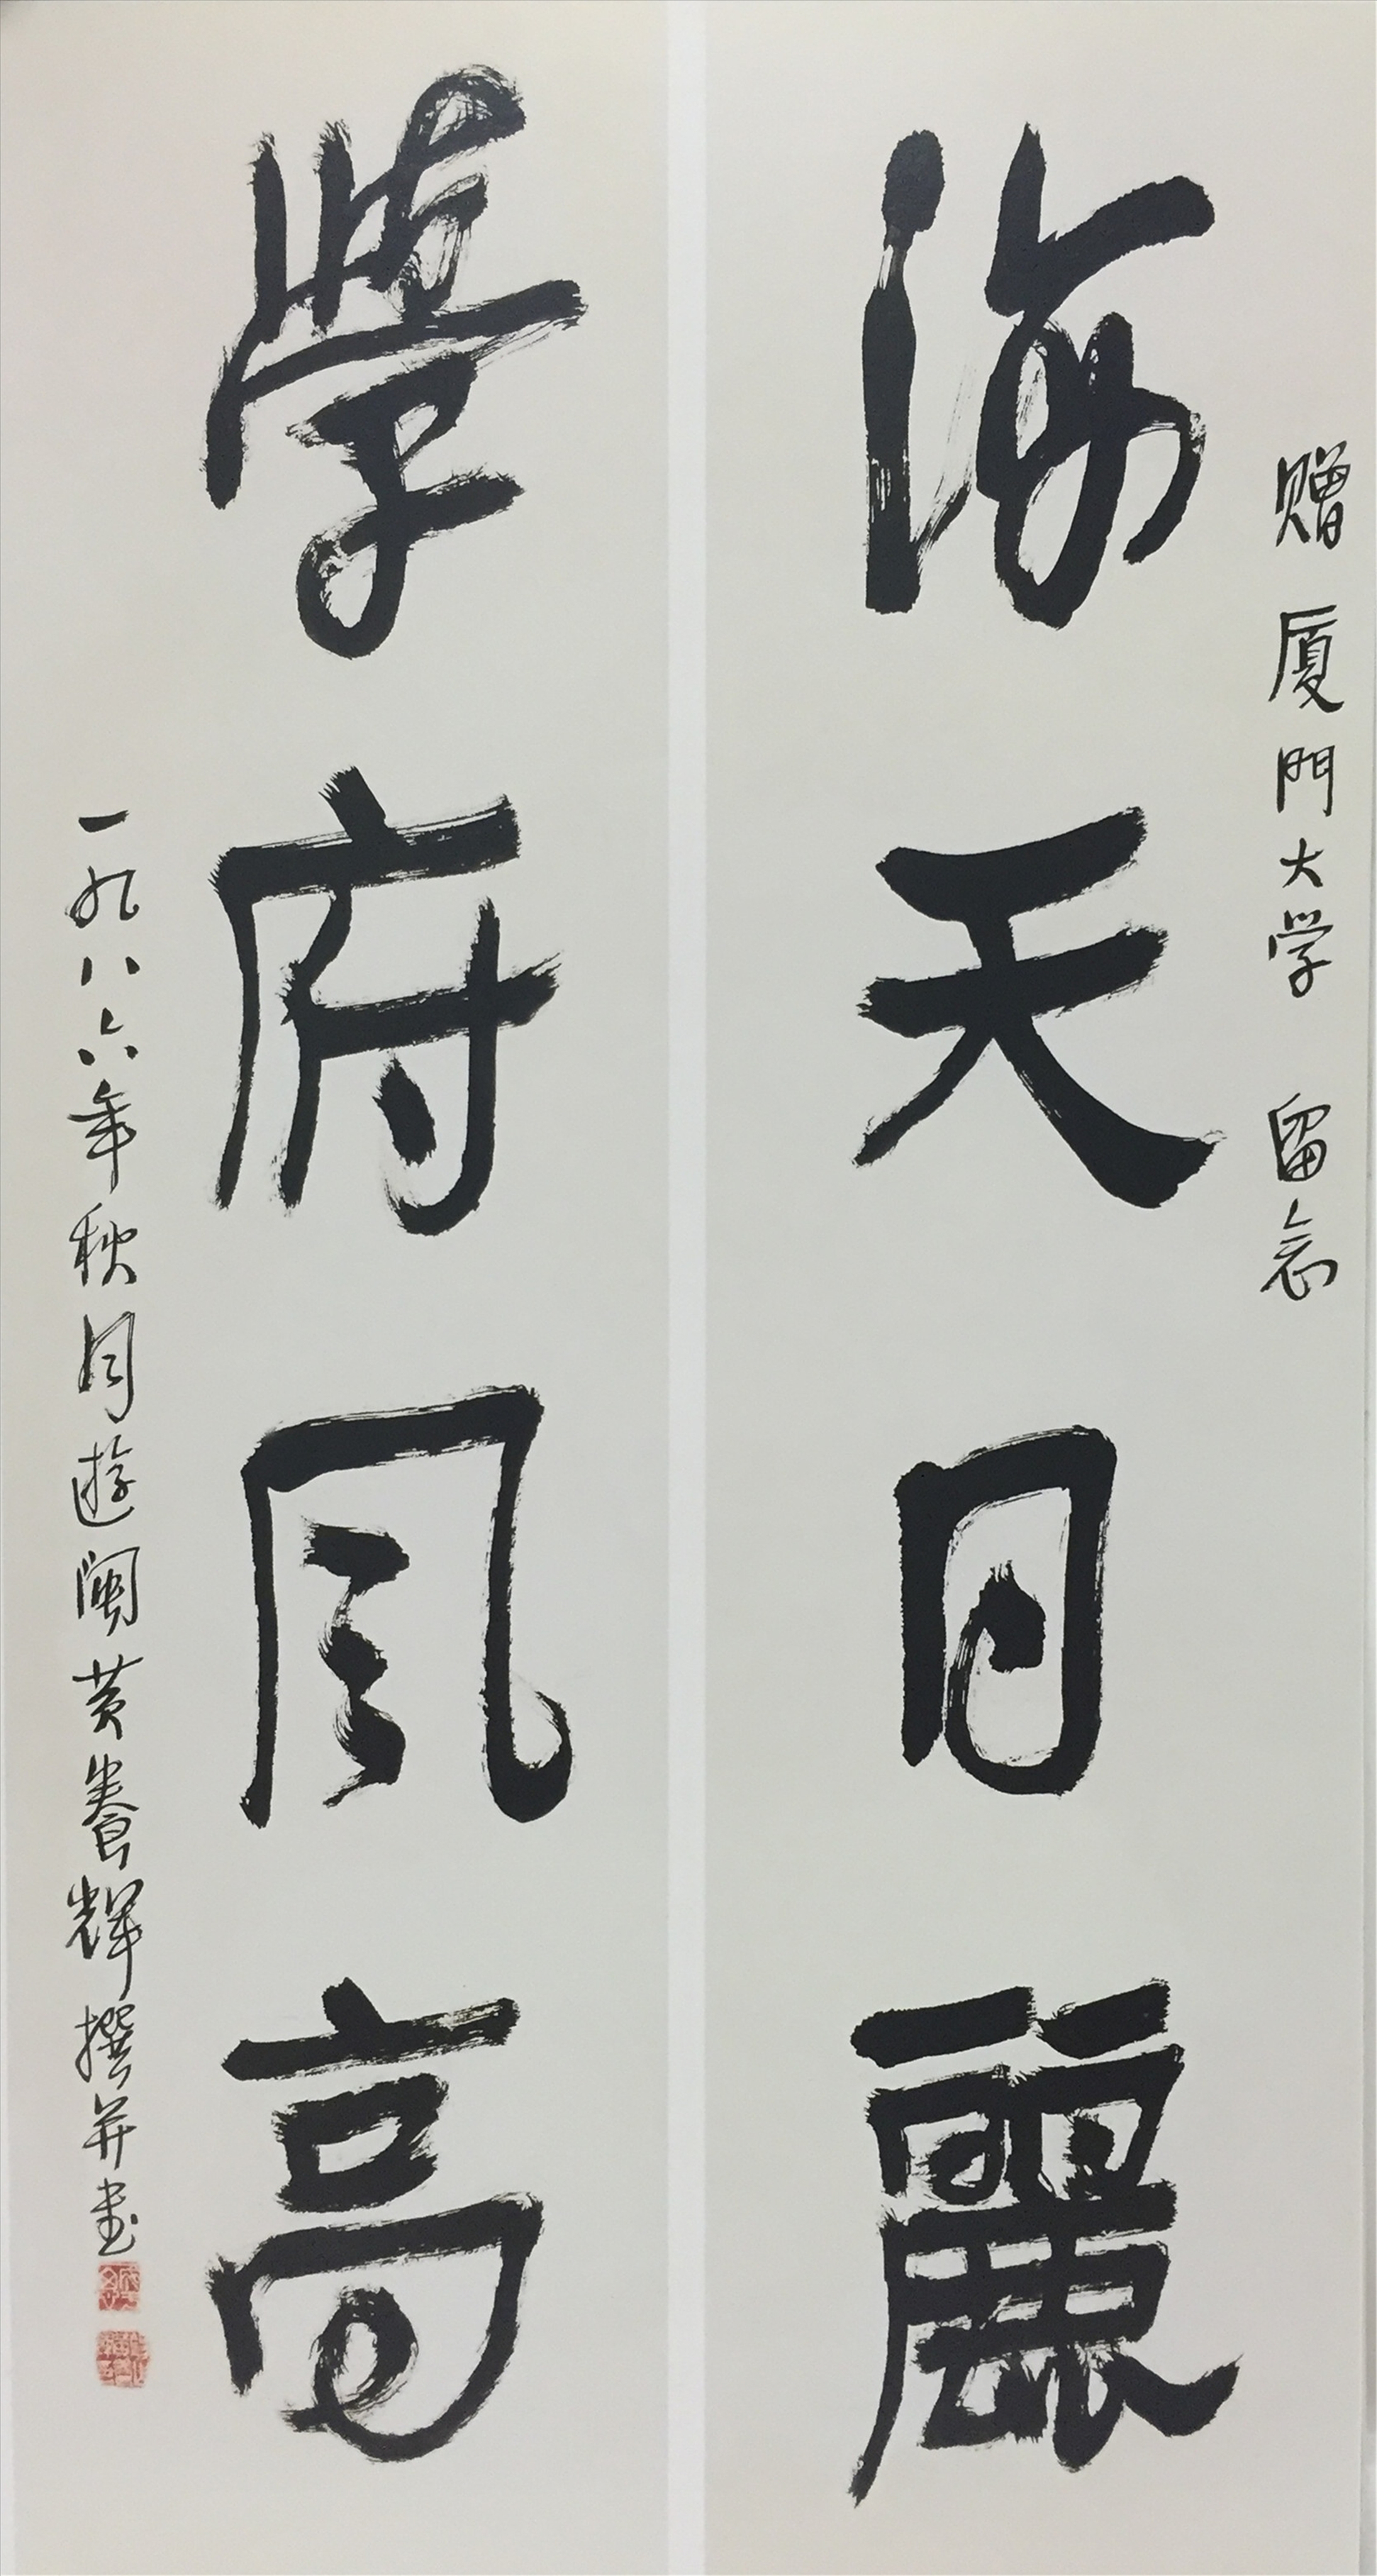 赠厦門大学 留念
海天日麗
學府風高
一九八六年秋月遊閩黄養輝撰并書